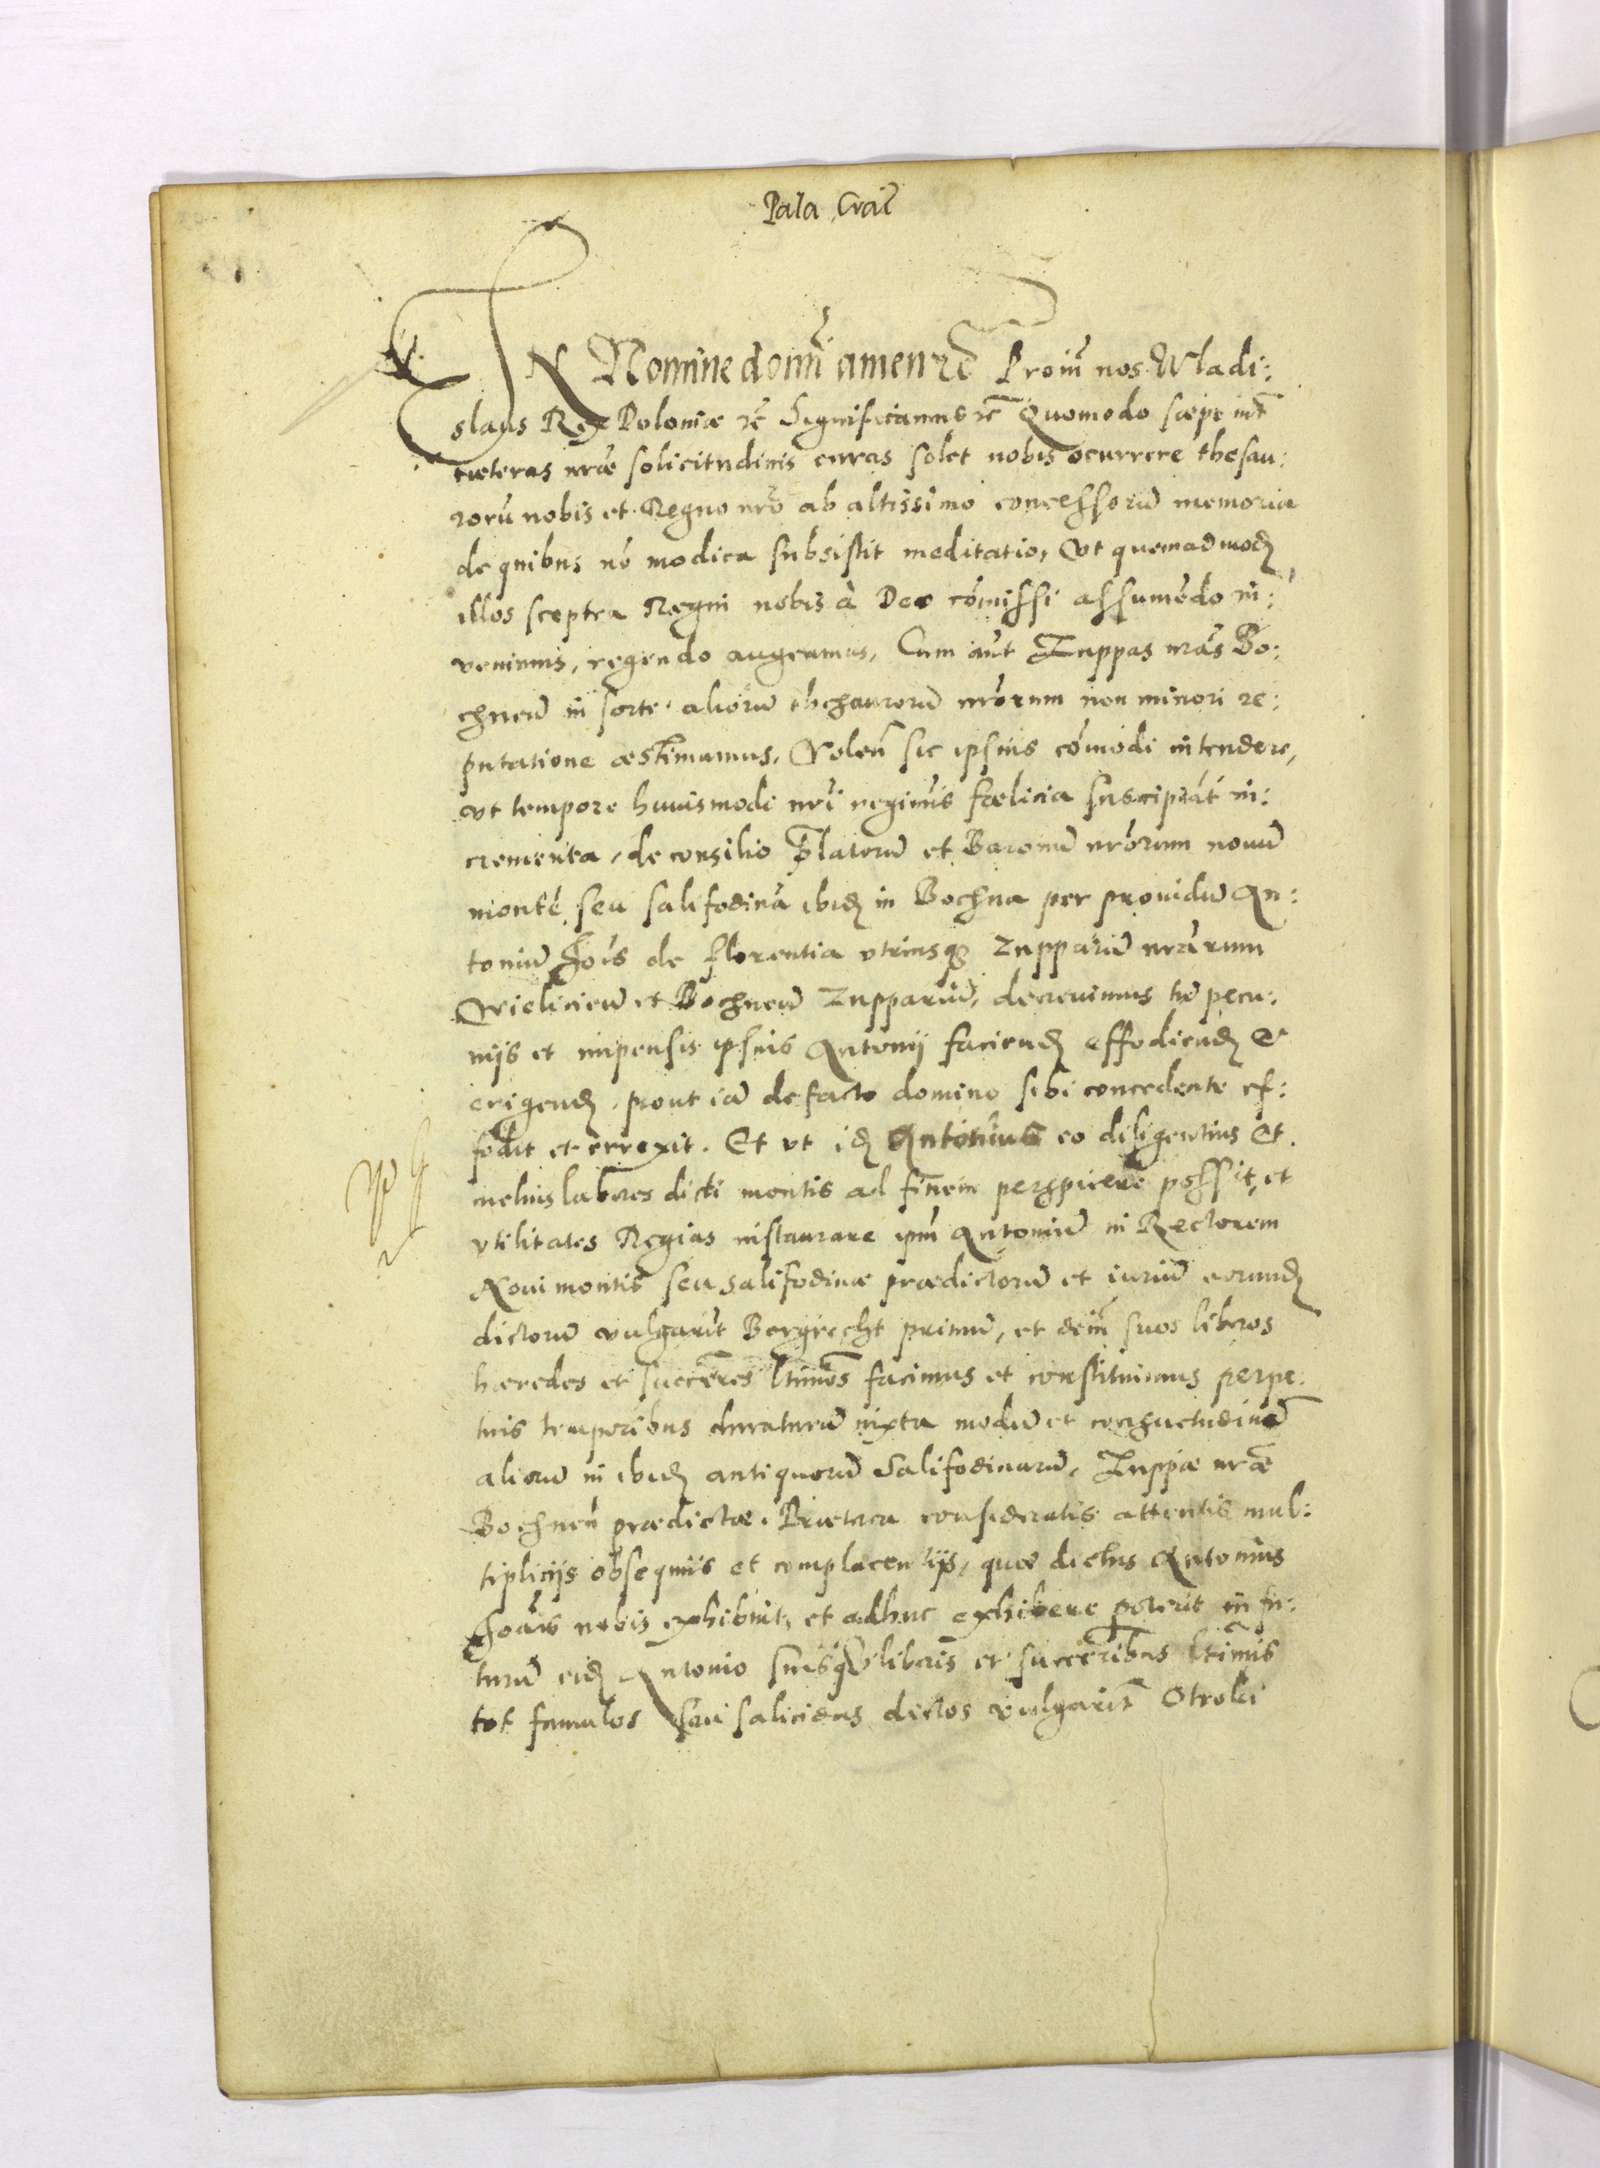 Pala Craĉ
IN Nomine domī amen etc̃ Proiñ nos Wladi:
slaus Rex Poloniæ etc̃ Significamus etc̃ Quomodo sæpe int̃
cæteras nr̃æ solicitudinis curas solet nobis ocurrere thesau:
rorũ nobis et Regno nr̃o ab altissimo concessorũ memoria
de quibus nõ modica subsistit meditatio, Vt quemadmodũ
illos sceptra Regni nobis à Deo cõmissi assumẽdo in:
venimus, regendo augeamus, Cum aũt Zuppas nr̃as Bo:
chneñ in sorte aliorũ thesaurorũ nr̃orum non minori re:
putatione æstimamus, Voleñ sic ipsius cõmodi intendere,
vt tempore huiusmodi nr̃i regimis fœlicia suscipiãt in:
crementa, de consilio P̃latorũ et Baronũ nr̃orum nouũ
montẽ seu salifodinã ibid̃ in Bochna per prouidũ An:
toniũ Joĩs de florentia vtriusq3 Zupparũ nr̃arum
Wielicieñ et Bochneñ Zupparũ, decreuimus suis pecu:
nijs et impensis ipsius Antonij faciend̃ effodiend̃ et
erigend̃, prout iã de facto domino sibi concedente ef:
fodit et errexit. Et vt id̃ Antonius eo diligentius et
melius labores dicti montis ad finem perspicere possit, et
vtilitates Regias instaurare ipm̃ Antoniũ in Rectorem
Noui montis seu salifodinæ prædictorũ et iuriũ eorund̃
dictorũ vulgarit̃ Bergrecht primũ, et deiñ suos liberos
hæredes et succẽres ltimõs facimus et constituimus perpe:
tuis temporibus duraturũ iuxta modũ et consuetudinẽ
aliorũ in ibid̃ antiquorũ Salifodinarũ, Zuppæ nr̃æ
Bochneñ prædictæ. Præterea consideratis attentis mul:
tiplicijs obsequiis et complacentijs, quæ dictus Antonius
Joãis nobis exhibuit, et adhuc exhibere poterit in fu:
turũ eid̃ Antonio suisq3 liberis et succẽribus ltimis
tot famulos seu salicidas dictos vulgarit̃ Otroki